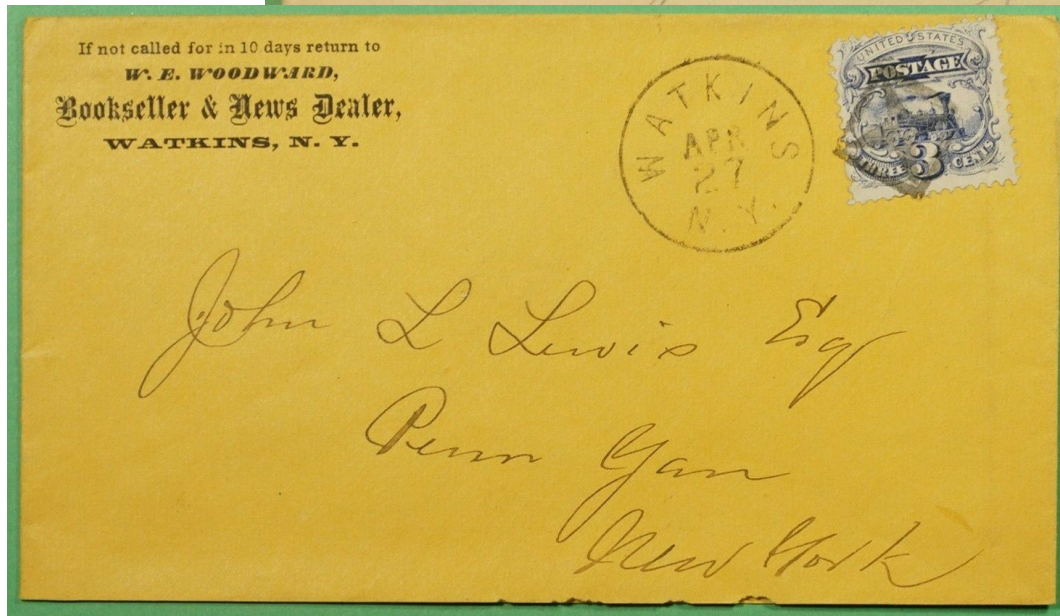 If not called for in 10 days return to
W. E. WOODWARD,
Bookseller & News Dealer,
WATKINS, N. Y.
WATKINS
APR
27
N. Y.
UNITED STATES
POSTAGE
THREE 3 CENTS
John L Lewis Esq
Penn Yan
New York